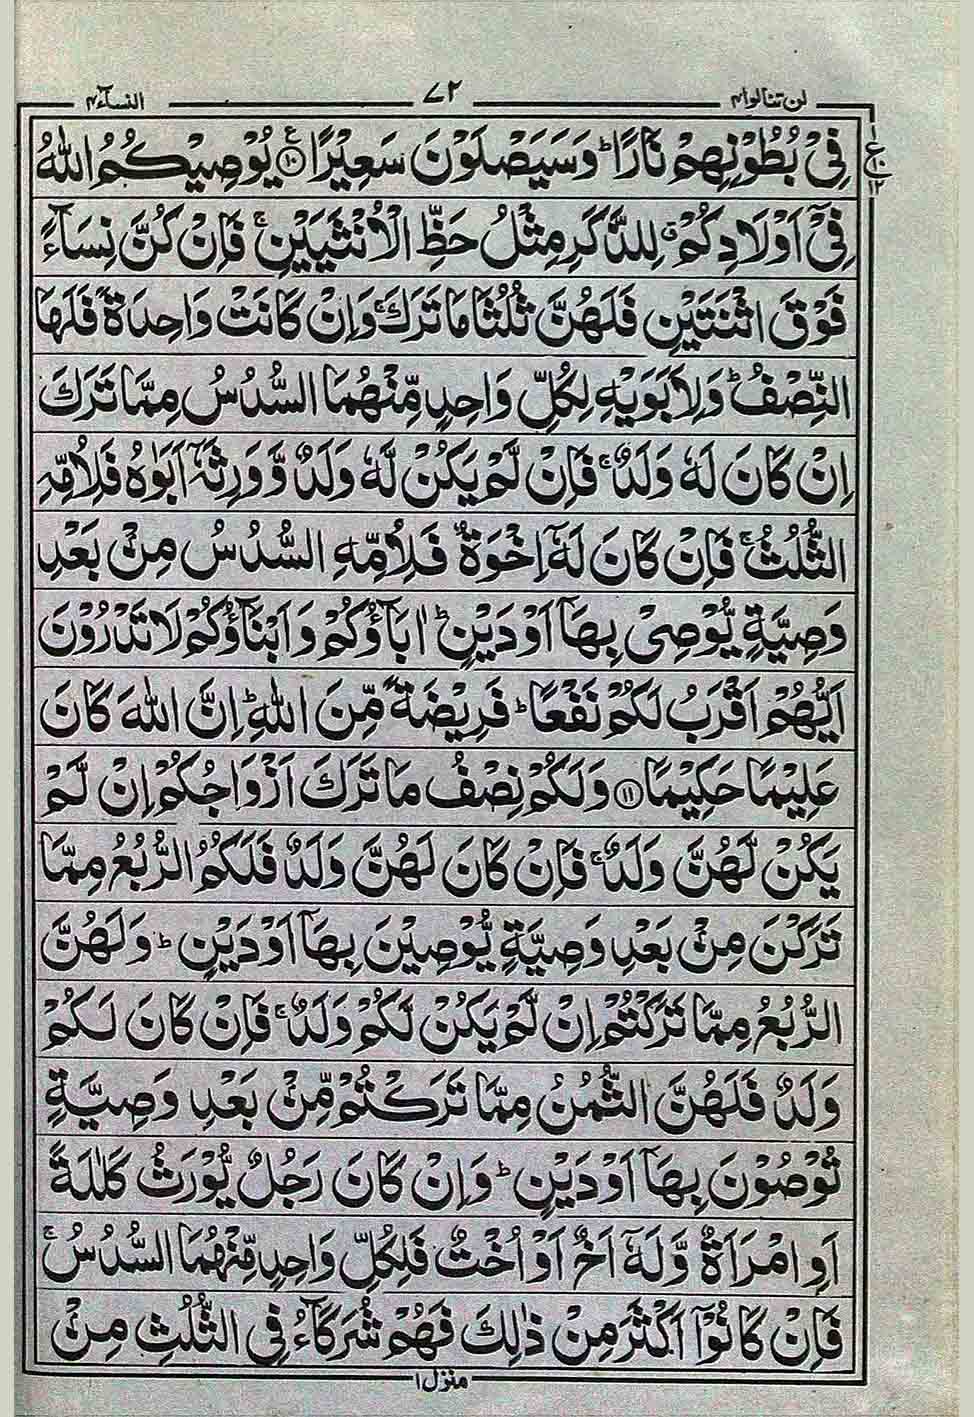 لن تنالوا ۴ ۷۲ النساء ۴
فِیْ بُطُوْنِهِمْ نَارًا ؕ وَسَیَصْلَوْنَ سَعِیْرًا ۟ۧ ۱۰ یُوْصِیْكُمُ اللّٰهُ
ع ۱۰ ۱۲
فِیْۤ اَوْلَادِكُمْ ۗ لِلذَّكَرِ مِثْلُ حَظِّ الْاُنْثَیَیْنِ ۚ فَاِنْ كُنَّ نِسَآءً
فَوْقَ اثْنَتَیْنِ فَلَهُنَّ ثُلُثَا مَا تَرَكَ ۚ وَاِنْ كَانَتْ وَاحِدَةً فَلَهَا
النِّصْفُ ؕ وَلِاَبَوَیْهِ لِكُلِّ وَاحِدٍ مِّنْهُمَا السُّدُسُ مِمَّا تَرَكَ
اِنْ كَانَ لَهٗ وَلَدٌ ۚ فَاِنْ لَّمْ یَكُنْ لَّهٗ وَلَدٌ وَّوَرِثَهٗۤ اَبَوٰهُ فَلِاُمِّهِ
الثُّلُثُ ۚ فَاِنْ كَانَ لَهٗۤ اِخْوَةٌ فَلِاُمِّهِ السُّدُسُ مِنْۢ بَعْدِ
وَصِیَّةٍ یُّوْصِیْ بِهَاۤ اَوْ دَیْنٍ ؕ اٰبَآؤُكُمْ وَاَبْنَآؤُكُمْ لَا تَدْرُوْنَ
اَیُّهُمْ اَقْرَبُ لَكُمْ نَفْعًا ؕ فَرِیْضَةً مِّنَ اللّٰهِ ؕ اِنَّ اللّٰهَ كَانَ
عَلِیْمًا حَكِیْمًا ۱۱ وَلَكُمْ نِصْفُ مَا تَرَكَ اَزْوَاجُكُمْ اِنْ لَّمْ
یَكُنْ لَّهُنَّ وَلَدٌ ۚ فَاِنْ كَانَ لَهُنَّ وَلَدٌ فَلَكُمُ الرُّبُعُ مِمَّا
تَرَكْنَ مِنْۢ بَعْدِ وَصِیَّةٍ یُّوْصِیْنَ بِهَاۤ اَوْ دَیْنٍ ؕ وَلَهُنَّ
الرُّبُعُ مِمَّا تَرَكْتُمْ اِنْ لَّمْ یَكُنْ لَّكُمْ وَلَدٌ ۚ فَاِنْ كَانَ لَكُمْ
وَلَدٌ فَلَهُنَّ الثُّمُنُ مِمَّا تَرَكْتُمْ مِّنْۢ بَعْدِ وَصِیَّةٍ
تُوْصُوْنَ بِهَاۤ اَوْ دَیْنٍ ؕ وَاِنْ كَانَ رَجُلٌ یُّوْرَثُ كَلٰلَةً
اَوِ امْرَاَةٌ وَّلَهٗۤ اَخٌ اَوْ اُخْتٌ فَلِكُلِّ وَاحِدٍ مِّنْهُمَا السُّدُسُ ۚ
فَاِنْ كَانُوْۤا اَكْثَرَ مِنْ ذٰلِكَ فَهُمْ شُرَكَآءُ فِی الثُّلُثِ مِنْۢ
منزل ۱